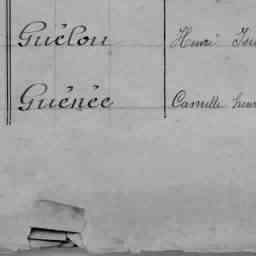 Guélou Henri
Guénée Camille